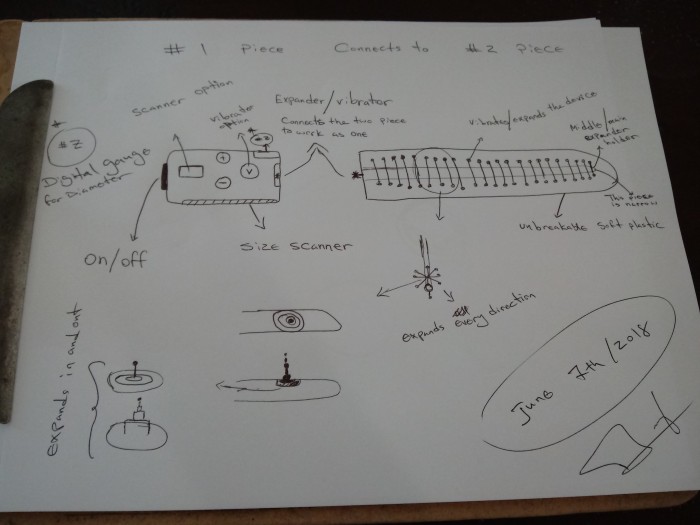 # 1 Piece Connects to #2 Piece
scanner option
vibrator option
Expander/vibrator
Connects the two piece
to work as one
vibrates/expands the device
Middle/main
expander
holder
*
#2
Digital gauge
for Diameter
#2
+
-
V
This piece
is narrow
unbreakable soft plastic
on/off
size scanner
expands every direction
expands in and out
June 7th/2018